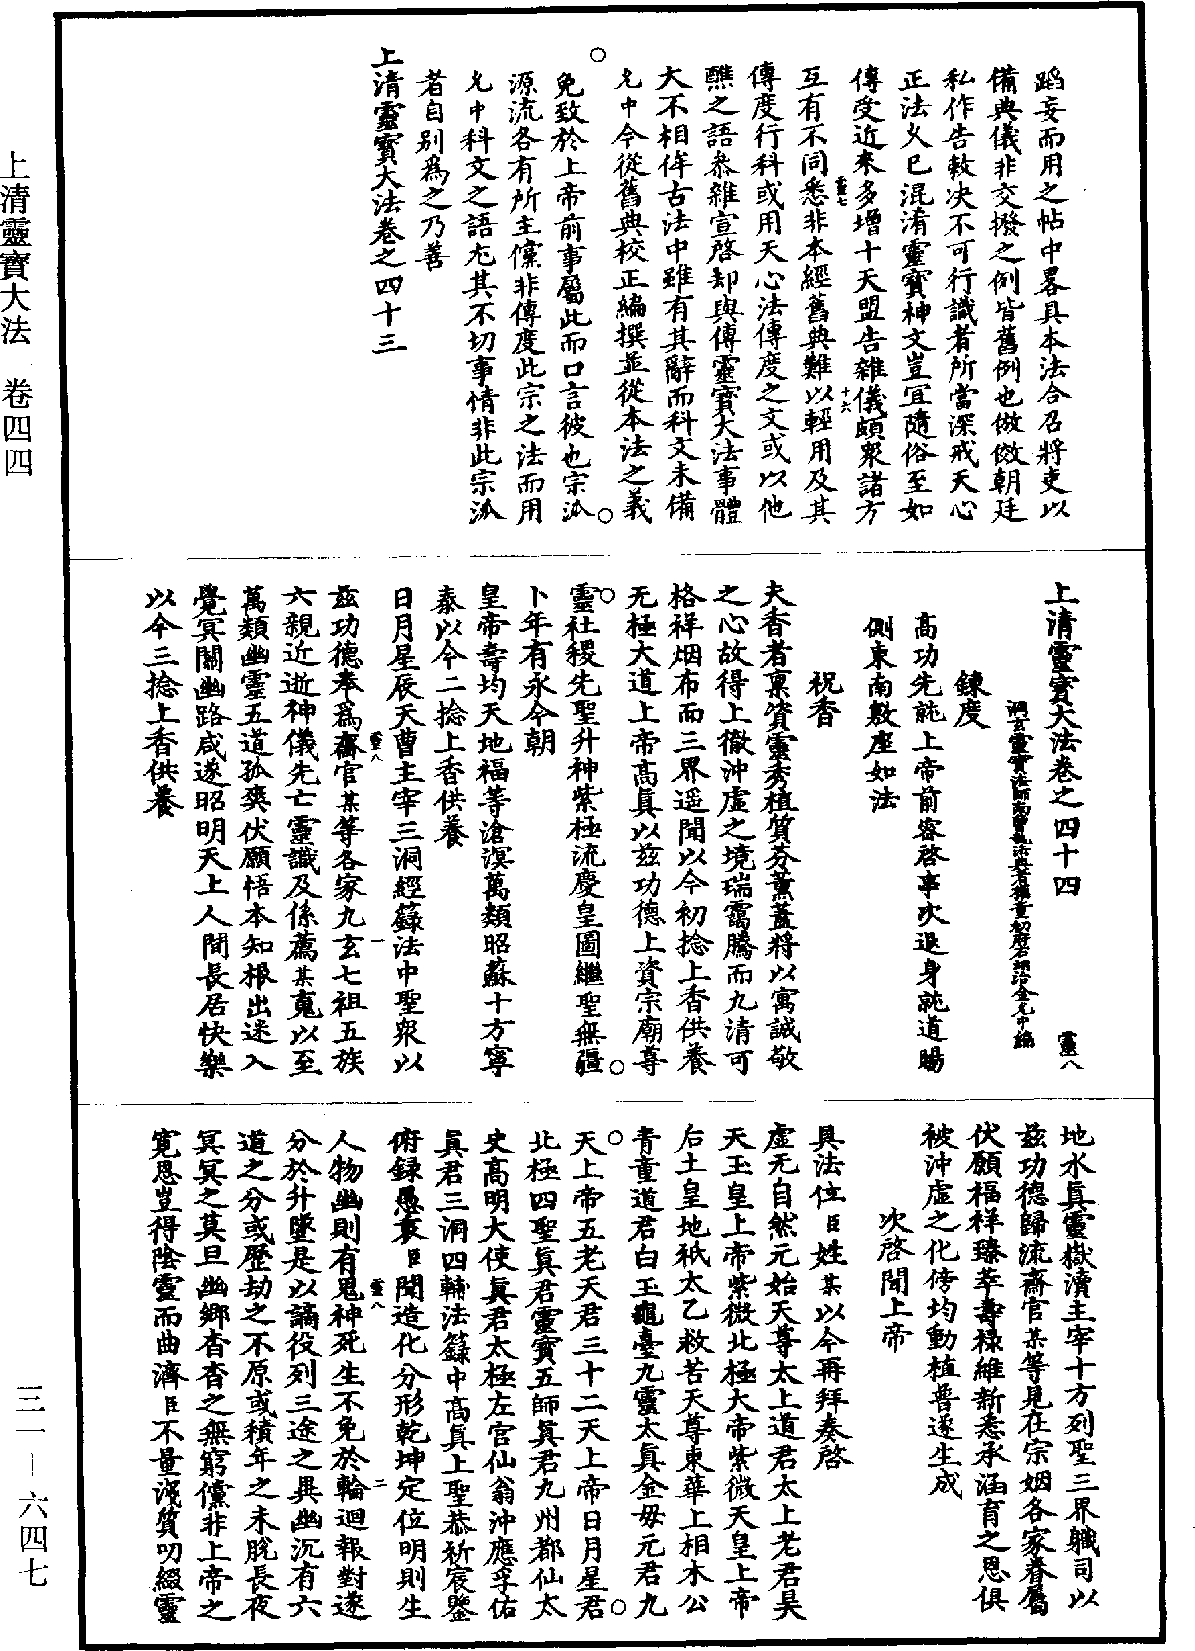 上清靈寶大法 卷四四
蹈妄而用之帖中畧具本法合召將吏以
備典儀非交撥之例皆舊例也倣傚朝廷
私作告敕决不可行識者所當深戒天心
正法久已混淆靈寶神文豈宜隨俗至如
傳受近來多增十天盟告雜儀頗衆諸方
互有不同悉非本經舊典難以輕用及其
靈七
十六
傳度行科或用天心法傳度之文或以他
醮之語叅雜宣啓却與傳靈寶大法事體
大不相侔古法中雖有其辭而科文未備
允中今從舊典校正編撰並從本法之義
免致於上帝前事屬此而口言彼也宗派
源流各有所主儻非傳度此宗之法而用
允中科文之語尤其不切事情非此宗派
者自別爲之乃善
上清靈寶大法卷之四十三
上清靈寶大法卷之四十四
靈八
洞玄靈寶法師南曹執法典者權童初府右翊治金允中編
鍊度
高功先詣上帝前容啓事次退身詣道場
側東南敷座如法
祝香
夫香者禀資靈秀植質芬薰蓋將以寓誠敬
之心故得上徹沖虛之境瑞靄騰而九清可
格祥烟布而三界遥聞以今初捻上香供養
无極大道上帝高眞以兹功德上資宗廟尊
靈社稷先聖升神紫極流慶皇圖繼聖無疆
卜年有永今朝
皇帝壽均天地福等滄溟萬類昭蘇十方寧
泰以今二捻上香供養
日月星辰天曹主宰三洞經籙法中聖衆以
兹功德奉爲齋官某等各家九玄七祖五族
靈八
一
六親近逝神儀先亡靈識及係薦某䰟以至
萬類幽靈五道孤爽伏願悟本知根出迷入
覺冥關幽路咸遂昭明天上人間長居快樂
以今三捻上香供養
地水眞靈嶽瀆主宰十方列聖三界職司以
兹功德歸流齋官某等見在宗姻各家眷屬
伏願福祥臻萃壽祿維新悉承涵育之恩俱
被沖虛之化傍均動植普遂生成
次啓聞上帝
具法位臣姓某以今再拜奏啓
虛无自然元始天尊太上道君太上老君昊
天玉皇上帝紫微北極大帝紫微天皇上帝
后土皇地祇太乙救苦天尊東華上相木公
青童道君白玉龜臺九靈太真金母元君九
天上帝五老天君三十二天上帝日月星君
北極四聖眞君靈寶五師眞君九州都仙太
史高明大使眞君太極左宫仙翁沖應孚佑
眞君三洞四輔法籙中高眞上聖恭祈宸鑒
俯録愚衷臣聞造化分形乾坤定位明則生
人物幽則有鬼神死生不免於輪迴報對遂
靈八
二
分於升墜是以謫役列三途之異幽沉有六
道之分或歷劫之不原或積年之未脫長夜
冥冥之莫旦幽鄉杳杳之無窮儻非上帝之
寛恩豈得陰靈而曲濟臣不量淺質叨綴靈
三一－六四七